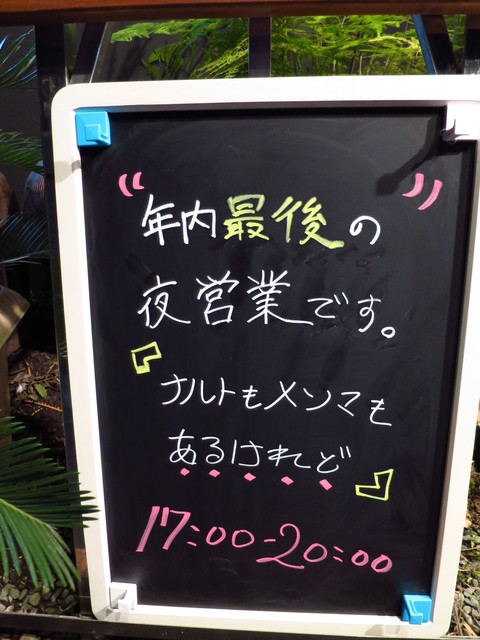 〝年内最後の〟
夜営業です。
「ナルトもメンマも
あるけれど」
17:00-20:00